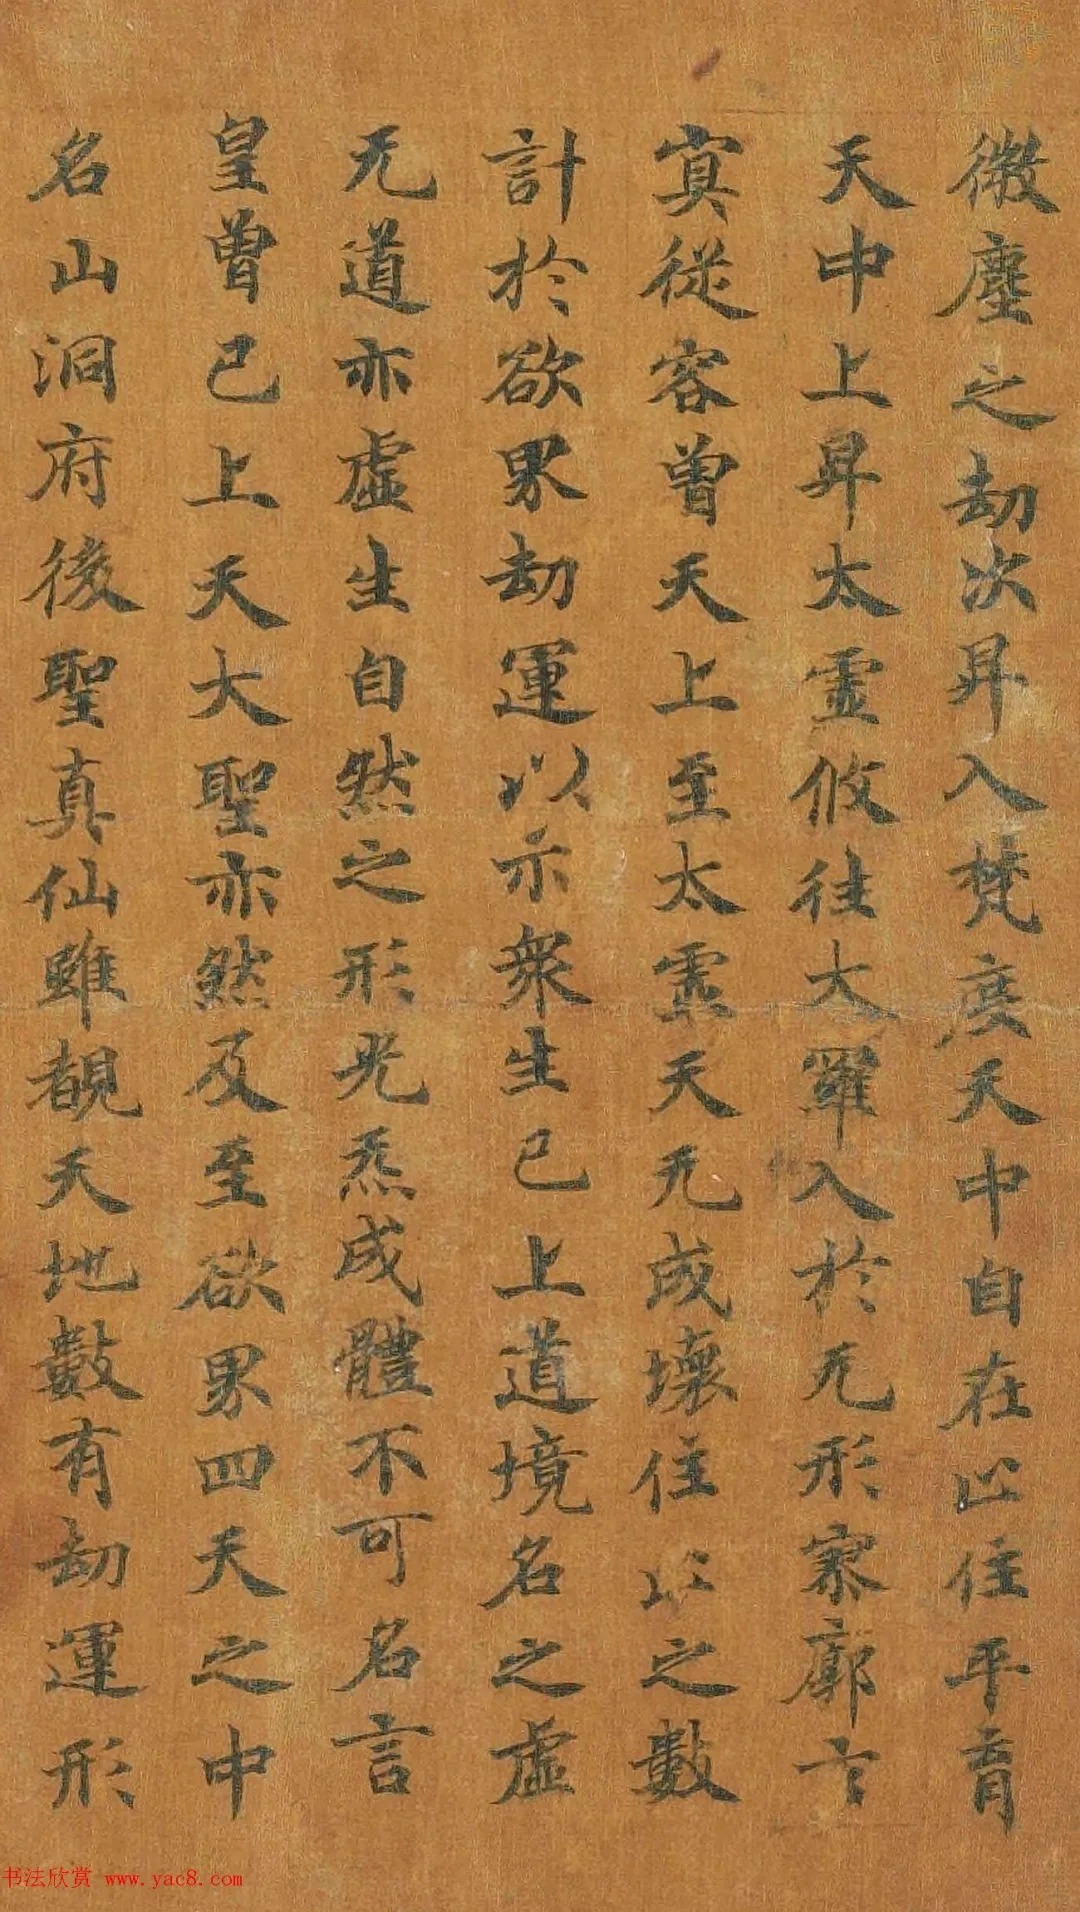 微塵之劫次昇入梵度天中自在止住平育
天中上昇太靈攸往大羅入於无形寥廓
㝠従容曾天上至太霊天无成壞住止之數
計於欲界劫運以示衆生已上道境名之虛
无道亦虛生自然之形光炁成體不可名言
皇曾已上天大聖亦然及至欲界四天之中
名山洞府後聖真仙雖覩天地數有劫運形
书法欣赏 www.yac8.com